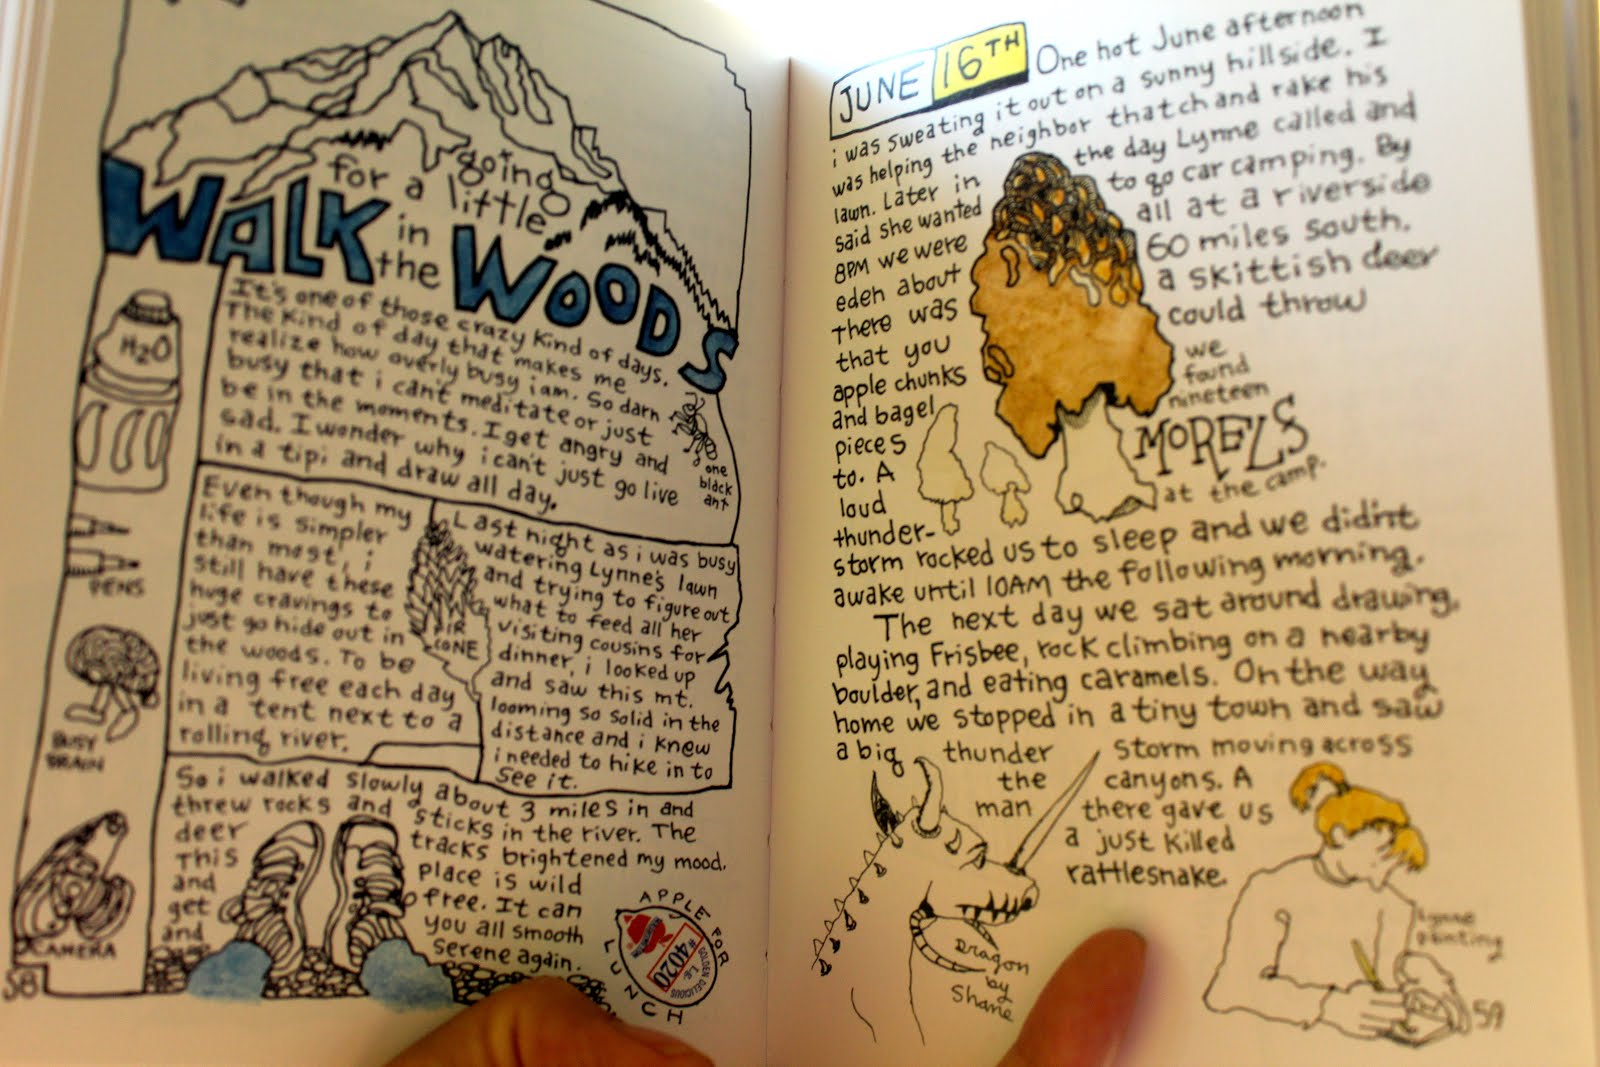 going
for a little
WALK in the WOODS
H2O
PENS
BUSY
BRAIN
CAMERA
58
It's one of those crazy kind of days.
The kind of day that makes me
realize how overly busy i am. So darn
busy that i can't meditate or just
be in the moments. I get angry and
sad. I wonder why i can't just go live
in a tipi and draw all day.
one
black
ant
Even though my
life is simpler
than most, i
still have these
huge cravings to
just go hide out in
the woods. To be
living free each day
in a tent next to a
rolling river.
FIR
CONE
Last night as i was busy
watering Lynne's lawn
and trying to figure out
what to feed all her
visiting cousins for
dinner, i looked up
and saw this mt.
looming so solid in the
distance and i knew
i needed to hike in to
see it.
So i walked slowly about 3 miles in and
threw rocks and sticks in the river. The
deer tracks brightened my mood.
This place is wild
and free. It can
get you all smooth
and serene again.
APPLE FOR
LUNCH
WASHINGTON
#4020
LG.
GOLDEN DELICIOUS
JUNE 16TH One hot June afternoon
i was sweating it out on a sunny hillside. I
was helping the neighbor thatch and rake his
lawn. Later in the day Lynne called and
said she wanted to go car camping. By
8PM we were all at a riverside
eden about 60 miles south.
There was a skittish deer
that you could throw
apple chunks
and bagel
pieces
to. A
loud
thunder-
we
found
nineteen
MORELS
at the camp.
storm rocked us to sleep and we didn't
awake until 10AM the following morning.
The next day we sat around drawing,
playing Frisbee, rock climbing on a nearby
boulder, and eating caramels. On the way
home we stopped in a tiny town and saw
a big thunder storm moving across
the canyons. A
man there gave us
a just killed
rattlesnake.
Dragon
by
Shane
Lynne
painting
59